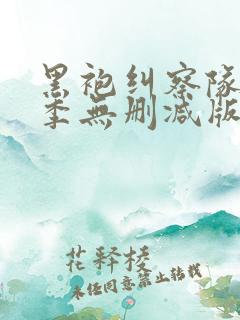 黑袍纠察队
季無删减版
花释棪
未经同意禁止转载